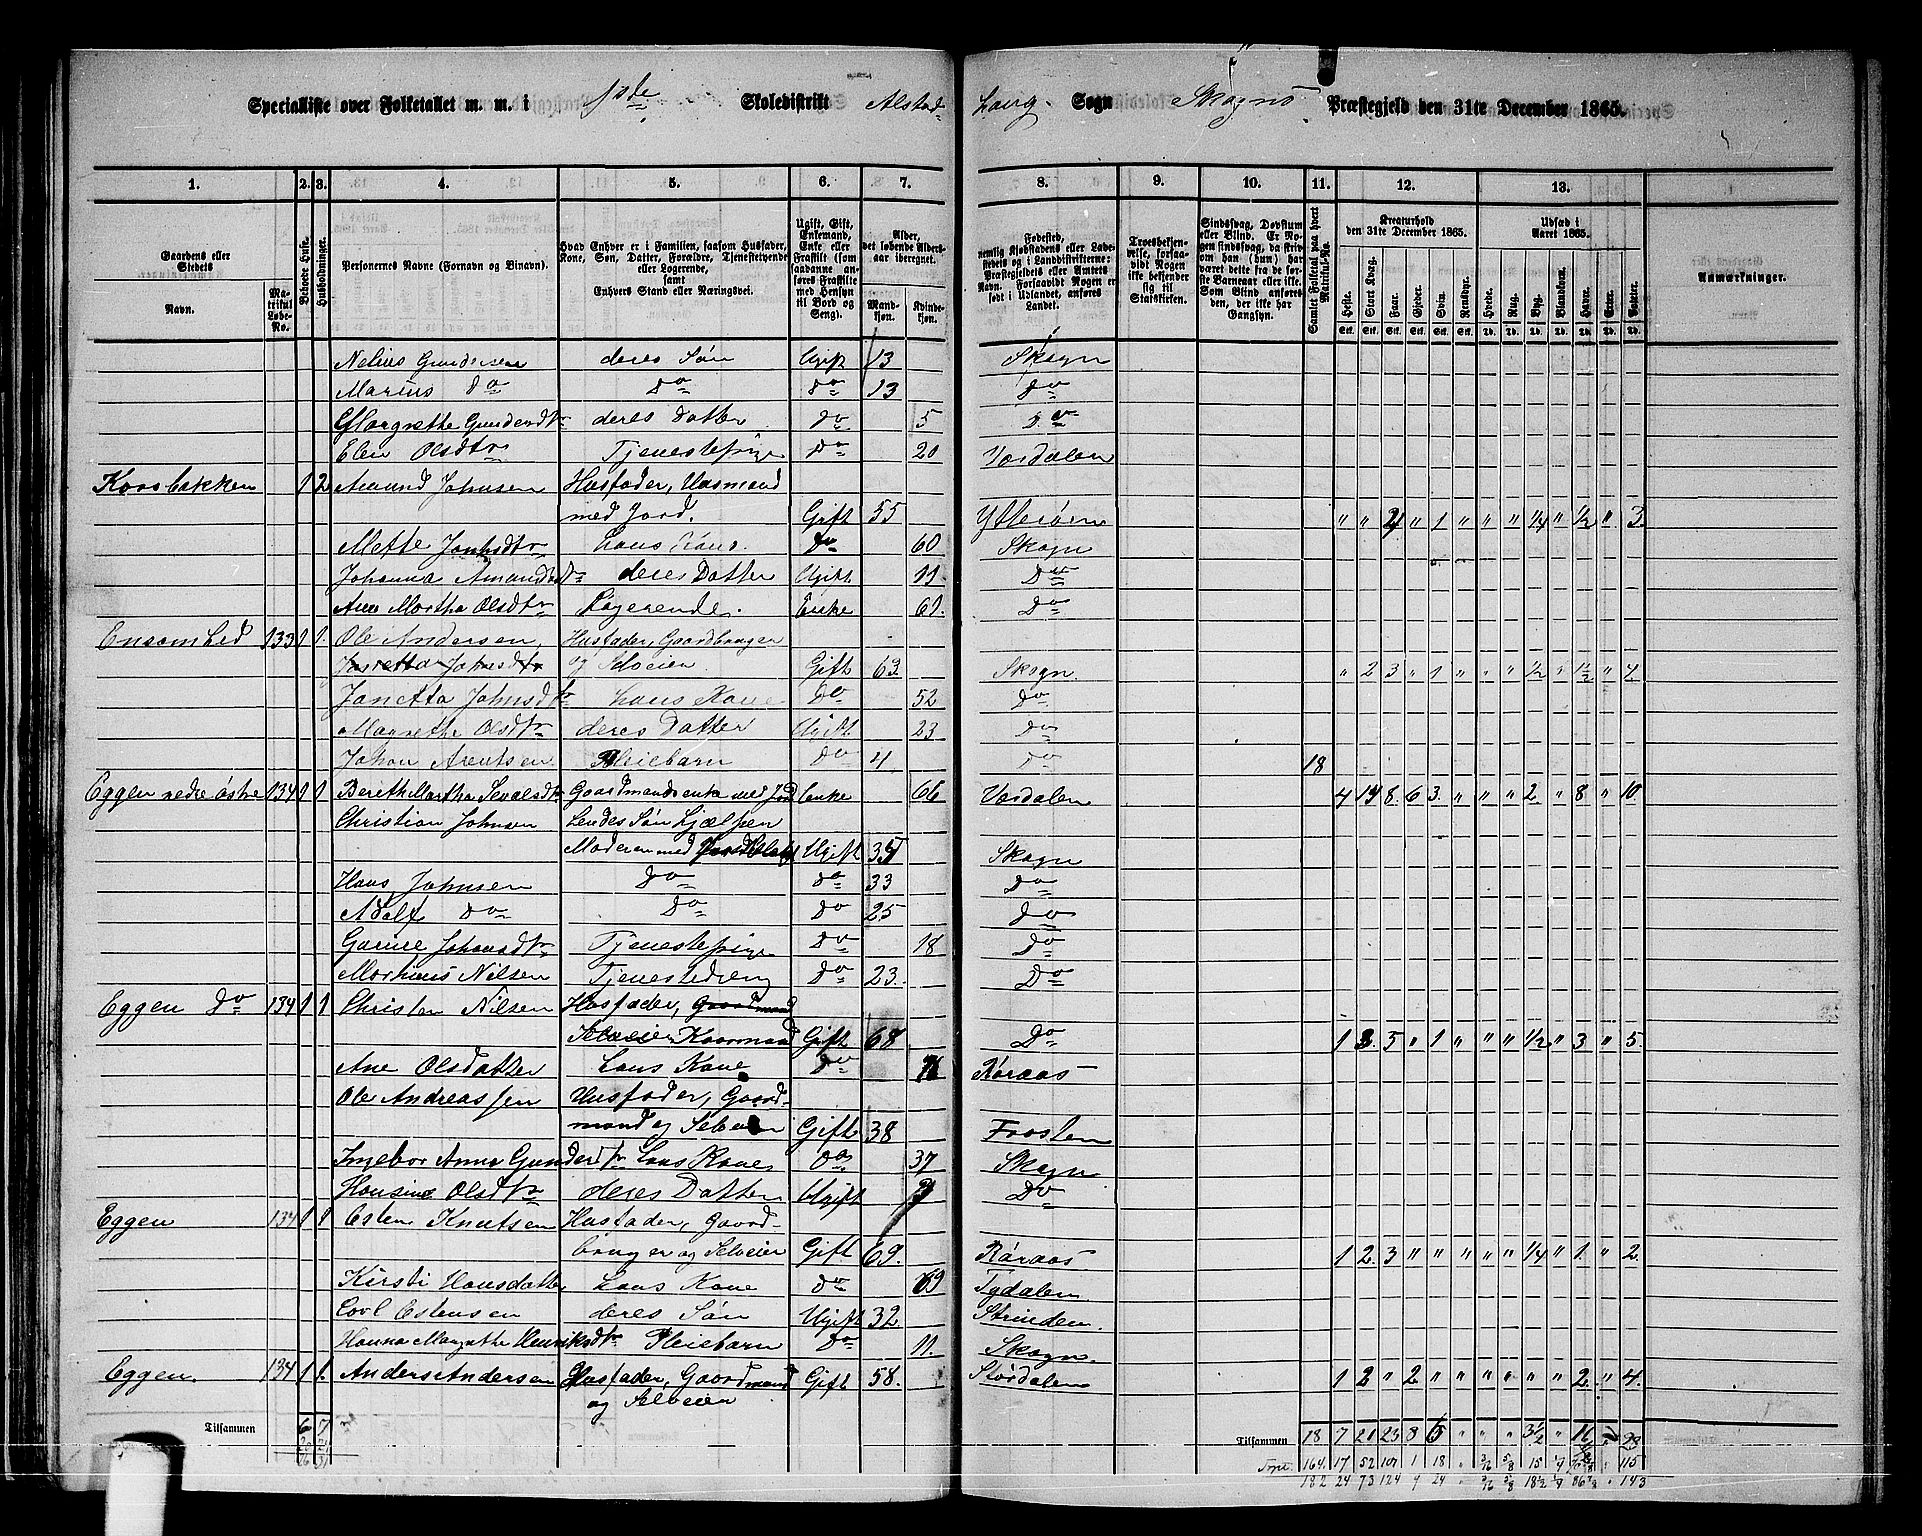 Specialliste over Folketallet m. m. i 1ode Skoledistrikt Alstadhaug Sogn Skogns Præstegjeld den 31te December 1865.
1. 2. 3. 4. 5. 6. 7. 8. 9. 10. 11. 12. 13.
Gaardens eller Stedets Navn. Matrikul Løbe-No. Beboede Huse. Husholdninger. Personernes Navne (Fornavn og Binavn). Hvad Enhver er i Familien, saasom Husfader, Kone, Søn, Datter, Forældre, Tjenestetyende eller Logerende, samt Enhvers Stand eller Næringsvei. Ugift, Gift, Enkemand, Enke eller Fraskilt (som saadanne anføres Fraskilte med Hensyn til Bord og Seng). Alder, det løbende Aldersaar iberegnet. Mandkjøn. Kvindekjøn.
Fødested, nemlig Kjøbstadens eller Ladestedets og i Landdistrikterne: Præstegjeldets eller Amtets Navn. Forsaavidt Nogen er født i Udlandet, anføres Landet. Troesbekjendelse, forsaavidt Nogen ikke bekjender sig til Statskirken. Sindssvag, Døvstum eller Blind. Er Nogen sindssvag, da skrives om han (hun) har været dette fra de første Barneaar eller ikke. Som Blind anføres den, der ikke har Gangsyn. Samlet Folketal paa hvert Matrikul-No. Kreaturhold den 31te December 1865. Udsæd i Aaret 1865. Anmærkninger.
Heste. Stort Kvæg. Faar. Gjeder. Svin. Rensdyr. Hvede. Rug. Byg. Blandkorn. Havre. Erter. Poteter.
Nelius Gundersen deres Søn Ugift 13 Skogn
Marius Do Do Do 13 Do
Margrethe Gundersdtr deres Datter Do 5 Do
Elen Olsdtr Tjenestepige Do 20 Værdalen
Korsbakken 1 2 Amund Johnsen Husfader, Husmand
med Jord. Gift 55 Ytterøen " " 2 " 1 " " " 1/4 " 1/2 " 3
Mette Hans Kone. Do 60 Skogn
Johanna Amundsdtr deres Datter Ugift 11 Do
Ane Martha Olsdtr Logerende. Enke 61. Do
Ensomhed 133 1 1. Ole Andersen, Husfader, Gaardbruger
Janetta Johnsdtr og Selveier. Gift 63. Skogn. " 2 3 " 1 " " " 1/2 " 1 1/2 " 4
Janetta Johnsdtr Hans Kone Do 52 Do
Margrethe Olsdtr deres Datter Ugift 23 Do
Johan Arentsen Pleiebarn Do 4 Do 18
Eggen nedre østre 134 1 1 Bereth Martha Sevalsdtr Gaardmandsenke med Jord Enke 66 Værdalen 4 8. 6 3. " " " 2 " 8 " 10
Christian Johnsen hendes Søn hjælper
Moderen med Ugift 35 Skogn
Hans Johnsen Do Do 33 Do
Adolf Do Do Do 25 Do
Gurine Johansdtr Tjenestepige Do 18 Do
Marthinus Nilsen Tjenestedreng Do 23. Do
Eggen Do 134 1 1 Christen Nilsen Husfader, Gaardmand
Selveier Gift 68 Do 1 3. 5 " 1 " " " 1/2 " 3 " 5.
Ane Olsdatter Hans Kone Do Røraas
Ole Andreassen Husfader, Gaardmand
og Selveier Gift 38 Frosten
Ingebor Anna Gundersdtr Hans Kone Do 37 Skogn
Hansine Olsdtr deres Datter Ugift 3 Do
Eggen 134 1 1 Esten Knutsen Husfader, Gaardbruger
og Selveier Gift 69. Røraas 1 2. 3 " " " " " 1/4 " 1. " 2.
Kirsti Hansdatter Hans Kone Do 69 Tydalen
Carl Estensen deres Søn Ugift 32 Strinden.
Hanna Margrethe Henriksdtr Pleiebarn Do 11. Skogn.
Eggen. 134 1 1. Anders Andersen Husfader, Gaardmand Gift 58. Størdalen 1 2 " 2 " " " " " " 2. " 4.
og Selveier
Tilsammen 6 7
Tilsammen 18 7 21 23 8 6 " " " 3 1/2 " 16 28
164. 17 52 101 1 18 115
182 24 73 124 9 24 143